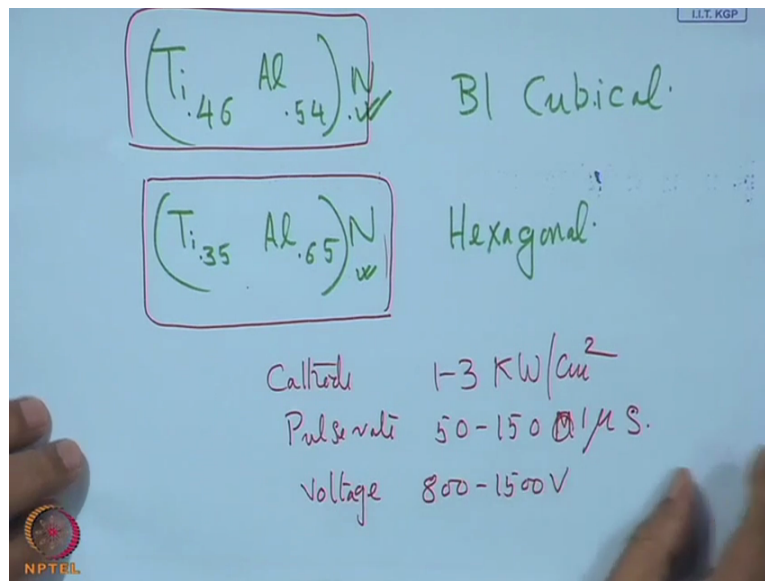 I.I.T. KGP
(Ti.46 Al.54)N B1 Cubical.
(Ti.35 Al.65)N Hexagonal.
Cathode 1-3 KW/Cm2
Pulse rate 50-150 /μS.
Voltage 800-1500V
NPTEL